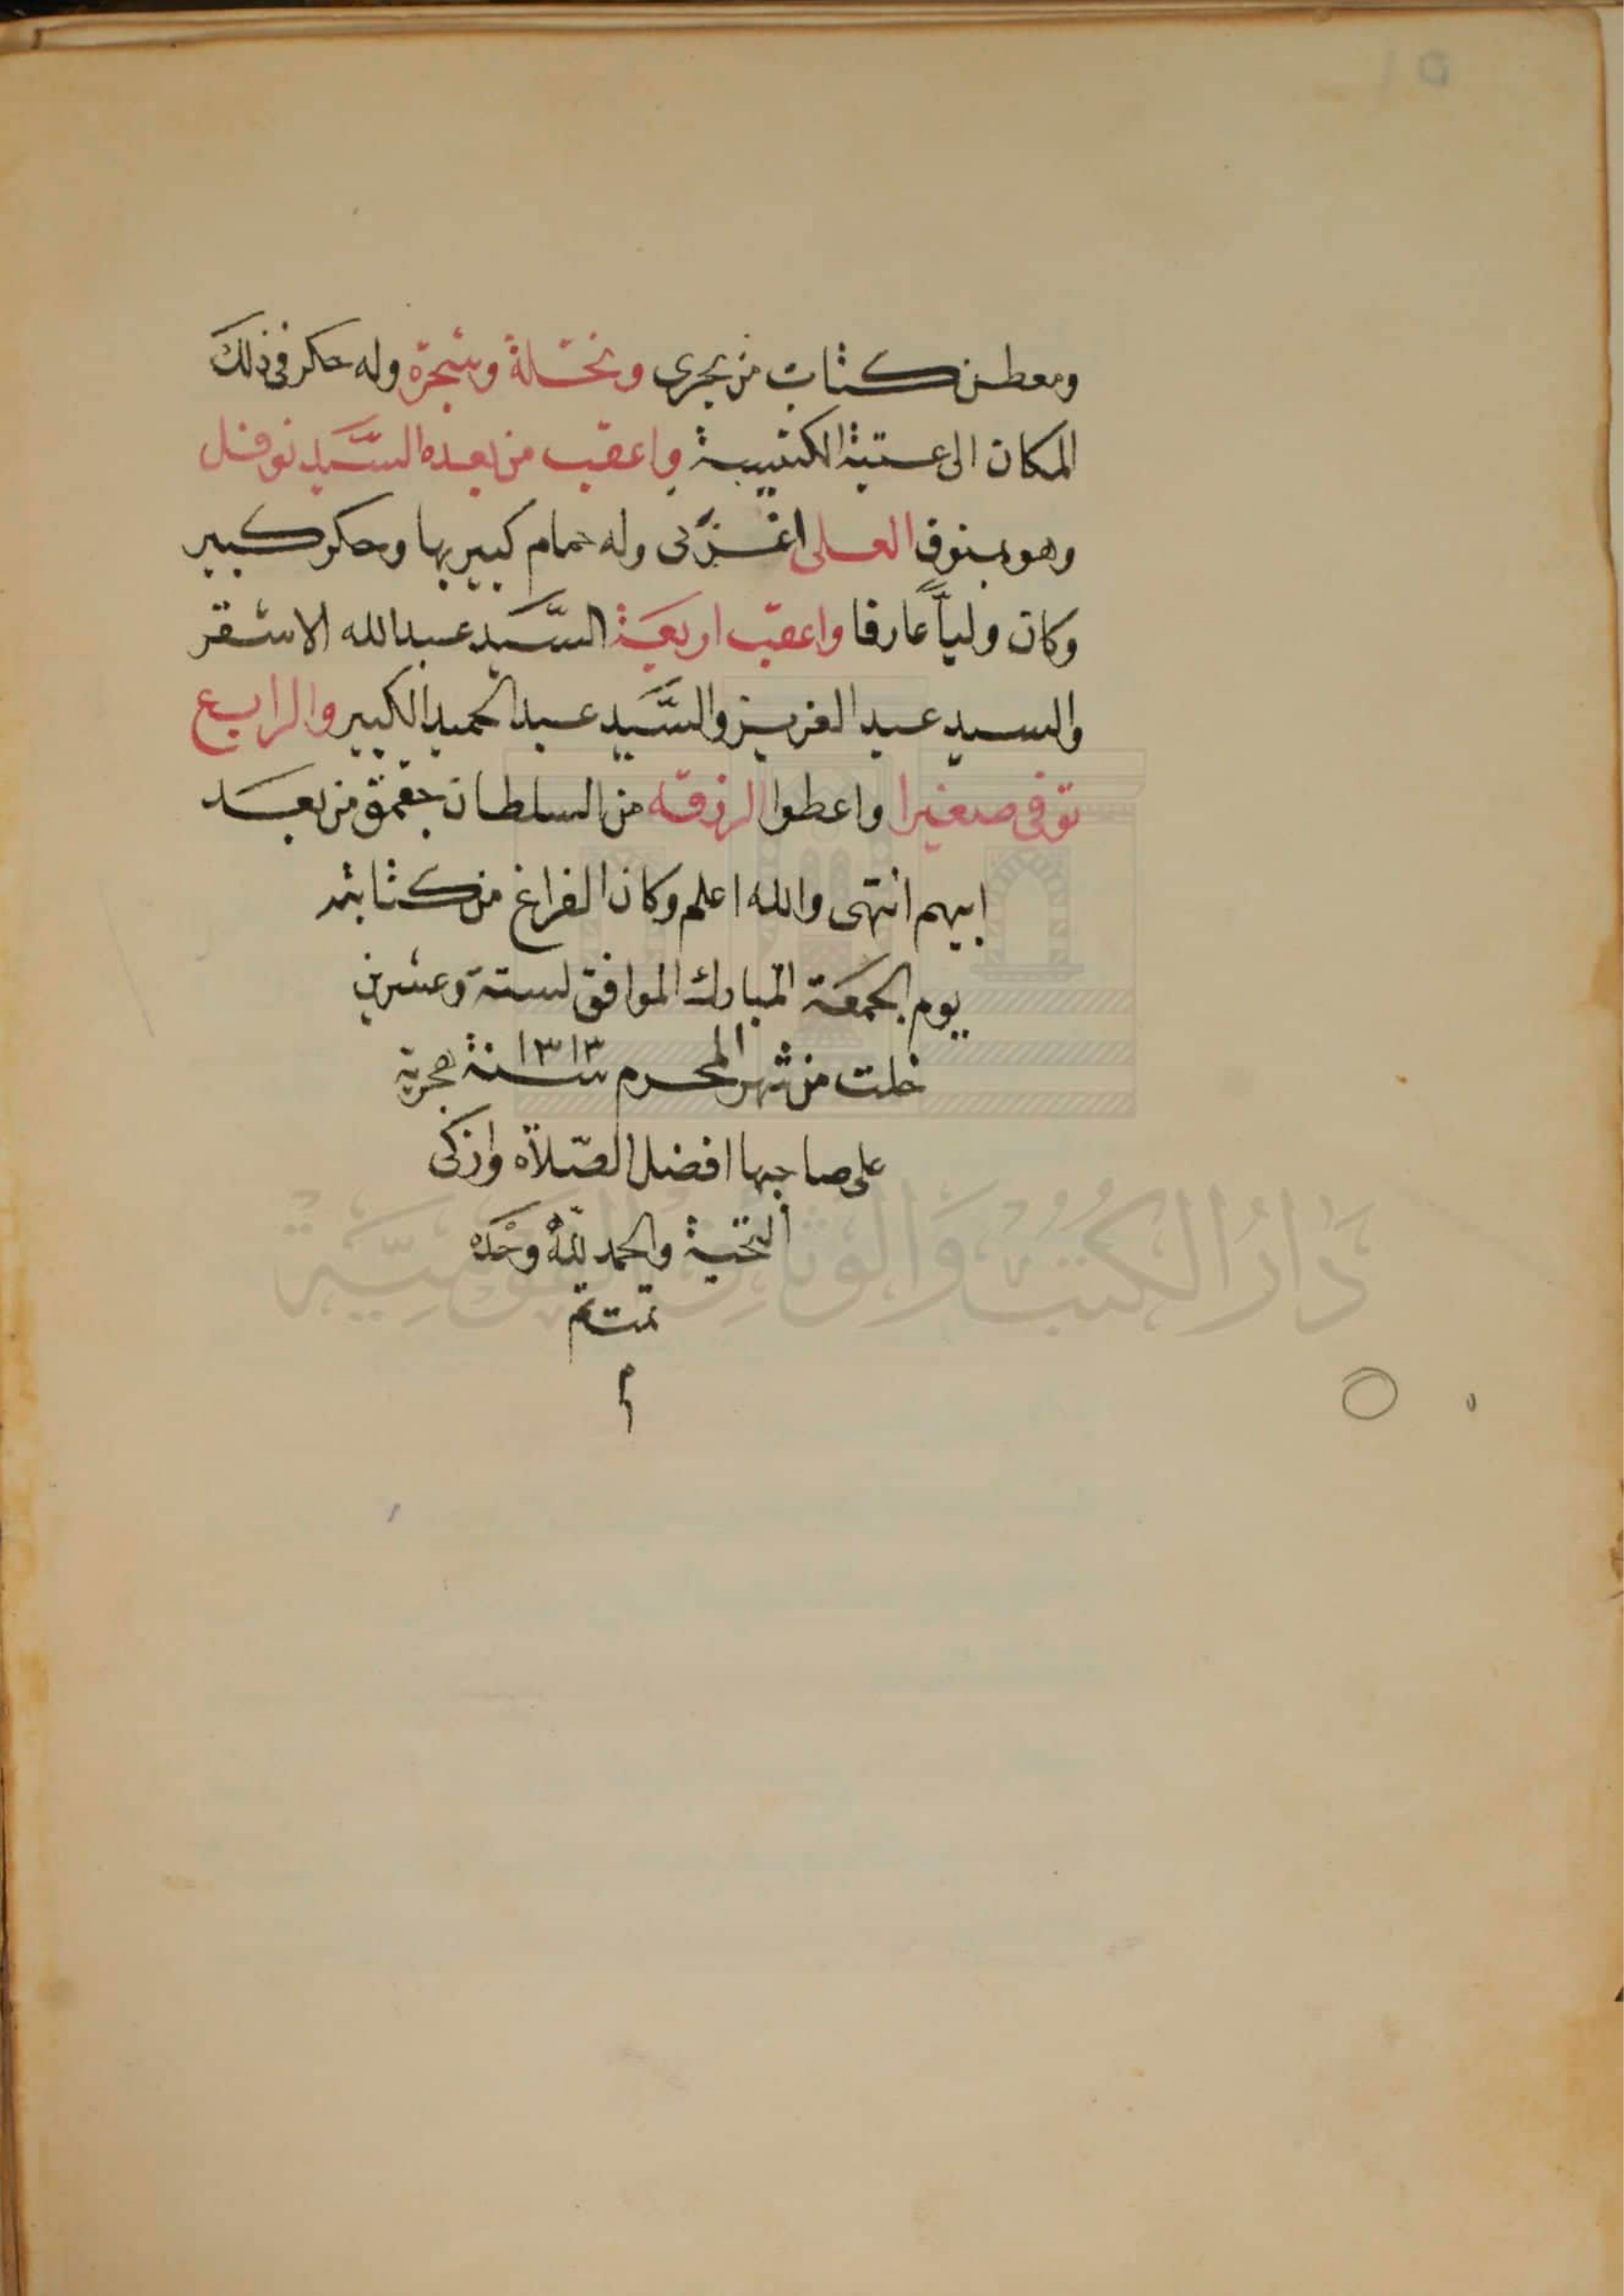 ومعطن كتان من بحرى ونخلة وشجرة وله حكر فى ذلك
المكان الى عتبة الكتبية واعقب من بعده السيد نوفل
وهو بمنوف العلى اغزلى وله حمام كبير بها وحكر كبير
وكان ولياً عارفا واعقب اربعة السَّيد عبدالله الاشقر
والسيد عبد العزيز والسَّيد عبد الحميد الكبير والرابع
توفى صغيرا واعطوا الرزقه من السلطان جقمق من بعد
ابيهم انتهى والله اعلم وكان الفراغ من كتابته
يوم الجمعة المبارك الموافق لستة وعشرين
خلت من شهر المحرم سنة ١٣١٣ هجرية
على صاحبها افضل الصّلاة وازكى
التحية والحمد للّه وحده
تمت تم
م
دَارُ الكُتُب وَالوَثَائِق القَوْمِيَّة